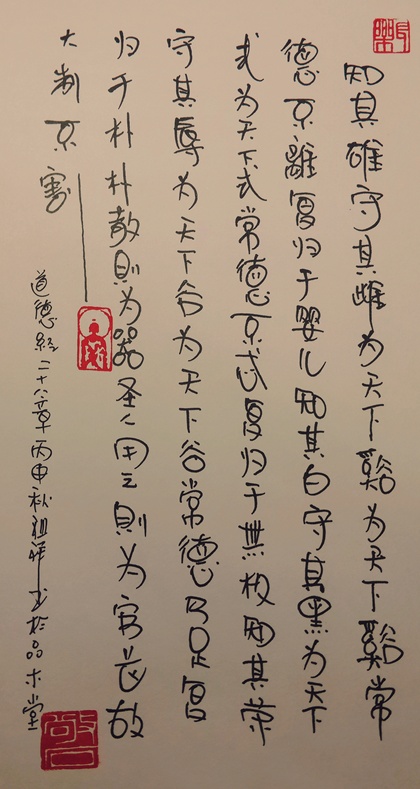 知其雄守其雌为天下谿为天下谿常
德不離复归于婴儿知其白守其黑为天下
式为天下式常德不忒复归于無极知其荣
守其辱为天下谷为天下谷常德乃足复
归于朴朴散則为器圣人用之則为官长故
大制不割
道德經二十八章丙申秋祖祥书於品木堂